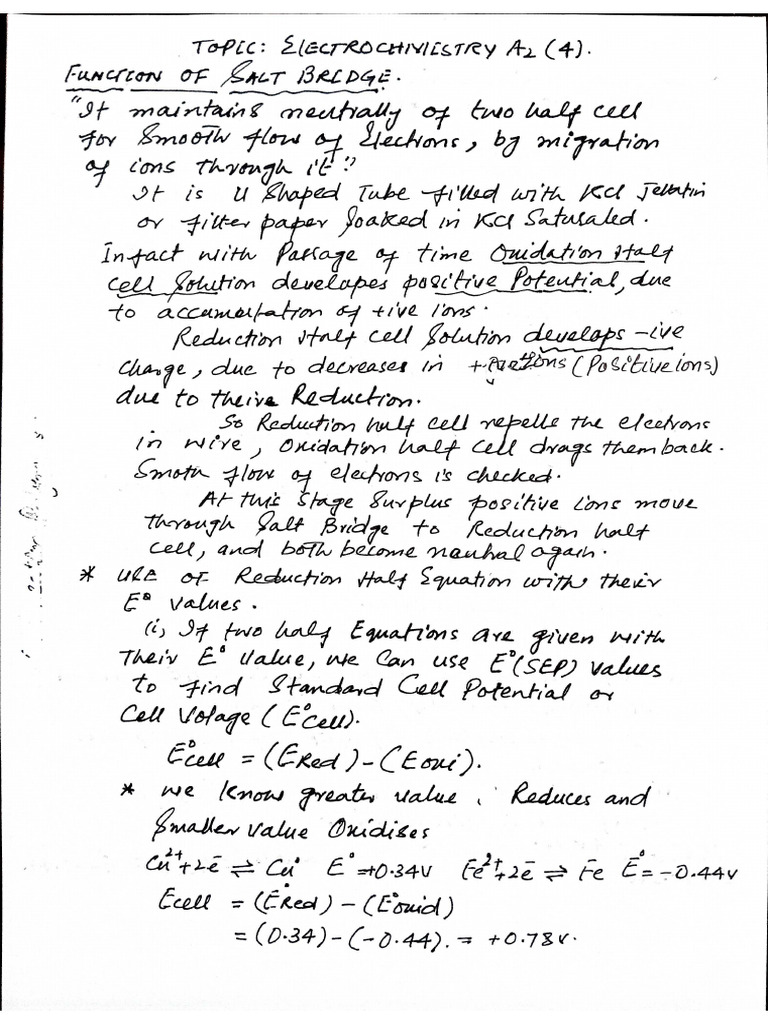 TOPIC: ELECTROCHIMESTRY A2 (4).
FUNCTION OF SALT BRIDGE.
"It maintains neutrally of two half cell
for Smooth flow of Electrons, by migration
of ions through it"
It is U Shaped Tube filled with KCl Jellatin
or filter paper Soaked in KCl Saturated.
Infact with Passage of time Oxidation Half
cell Solution developes positive Potential, due
to accumaltation of +ive ions.
Reduction Half cell Solution develops -ive
Charge, due to decreases in (Positive ions)
due to theire Reduction.
So Reduction half cell repells the electrons
in wire, Oxidation half cell drags them back.
Smoth flow of electrons is checked.
At this Stage Surplus positive ions move
through Salt Bridge to Reduction half
cell, and both become neutral again.
* USE OF Reduction Half Equation with their
E° values.
(i) If two half Equations are given with
Their E° Value, we Can use E°(SEP) values
to find Standard Cell Potential or
Cell Voltage (E°Cell).
E°cell = (ERed) - (Eoxi).
* we know greater value, Reduces and
Smaller value Oxidises
Cu²⁺+2e̅ ⇌ Cu° E°=+0.34V Fe²⁺+2e̅ ⇌ Fe E°= -0.44V
Ecell = (E°Red) - (E°oxid)
= (0.34) - (-0.44). = +0.78V.